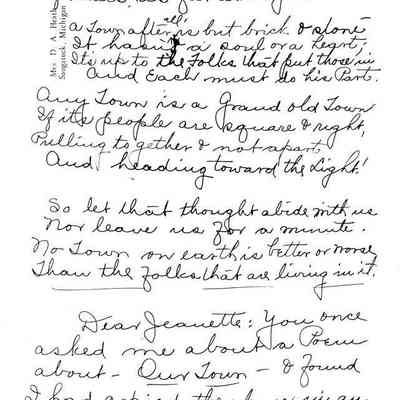 Mrs. D. A. Heath
Saugatuck, Michigan
A Town after all is but brick & stone
It hasn't a soul or a heart;
It's up to the Folks that put those in
And Each must do his Part.
Any Town is a Grand old Town
If its people are square & right,
Pulling together & not apart
And heading toward the Light!
So let that thought abide with us
Nor leave us for a minute.
No Town on earth is better or worse
Than the folks that are living in it.
Dear Jeanette: You once
asked me about a Poem
about - Our Town - & found
I had